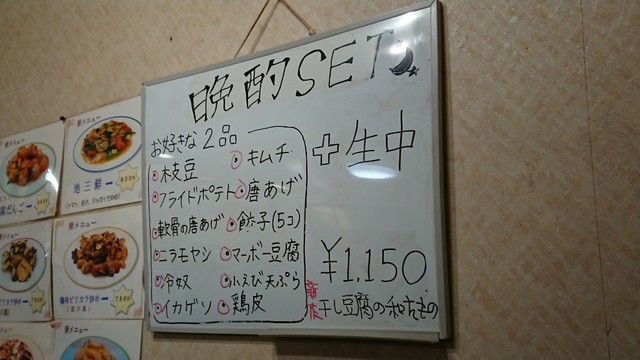 晩酌SET
お好きな2品
枝豆
キムチ
フライドポテト
唐あげ
軟骨の唐あげ
餃子(5コ)
ニラモヤシ
マーボー豆腐
冷奴
小えび天ぷら
イカゲソ
鶏皮
＋生中
¥1,150
干し豆腐の和えもの
新メニュー
新メニュー
地三鮮
新メニュー
新メニュー